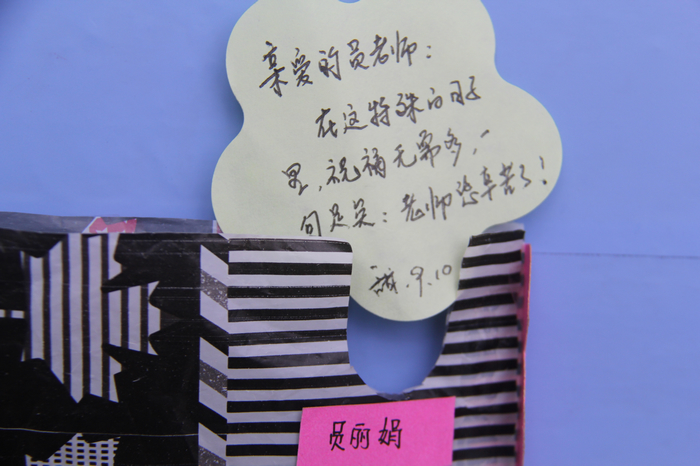 亲爱的员老师：
在这特殊的日子
里，祝福无需多，一
句足矣：老师您辛苦了！
9.10
员丽娟